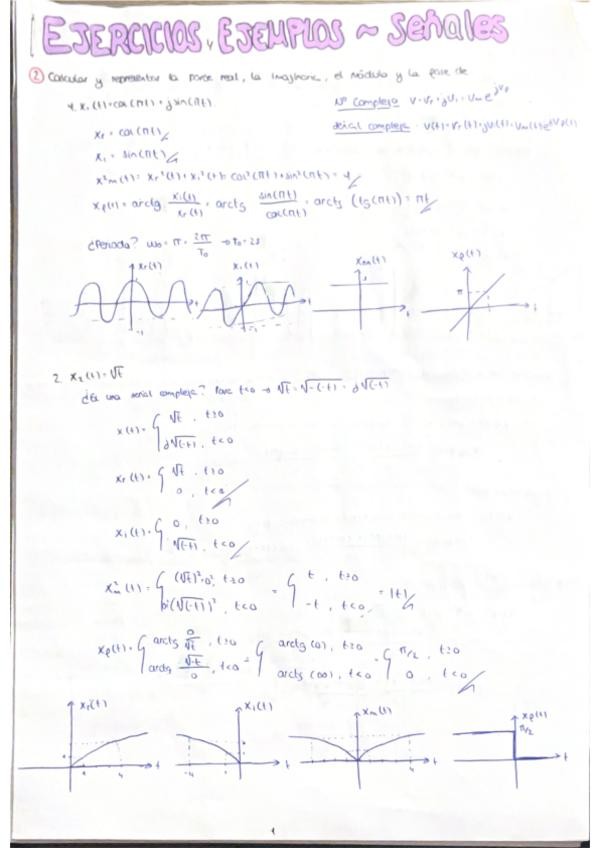 EJERCICIOS Y EJEMPLOS ~ Señales
② Calcular y representar la parte real, la imaginaria, el módulo y la fase de
1. x₁(t)=cos(πt)+j sin(πt)
Nº Complejo V=Vr+jVi=Vm e^{jVp}
Señal compleja V(t)=Vr(t)+jVi(t)=Vm(t)e^{jVp(t)}
Xr = cos(πt)
Xi = sin(πt)
X²m(t)= Xr²(t)+Xi²(t)= cos²(πt)+sin²(πt)= 1
Xp(t)= arctg Xi(t)/Xr(t) = arctg sin(πt)/cos(πt) = arctg (tg(πt)) = πt
¿Periodo? ω₀ = π = 2π/T₀ → T₀ = 2s
Xr(t) Xi(t) Xm(t) Xp(t)
1 -1 π t
2. X₂(t)=√t
¿Es una señal compleja? Para t<0 → √t = √-(-t) = j√(-t)
x(t)= { √t , t≥0
j√(-t) , t<0
Xr(t)= { √t , t≥0
0 , t<0
Xi(t)= { 0 , t≥0
√(-t) , t<0
X²m(t)= { (√t)²+0², t≥0 = { t , t≥0 = |t|
(√(-t))² , t<0 -t , t<0
Xp(t)= { arctg 0/√t , t≥0 = { arctg (0), t≥0 = { π/2 , t≥0
arctg √-t/0 , t<0 arctg (∞), t<0 0 , t<0
Xr(t) Xi(t) Xm(t) Xp(t)
π/2
4 t -4 t 4 t t
1